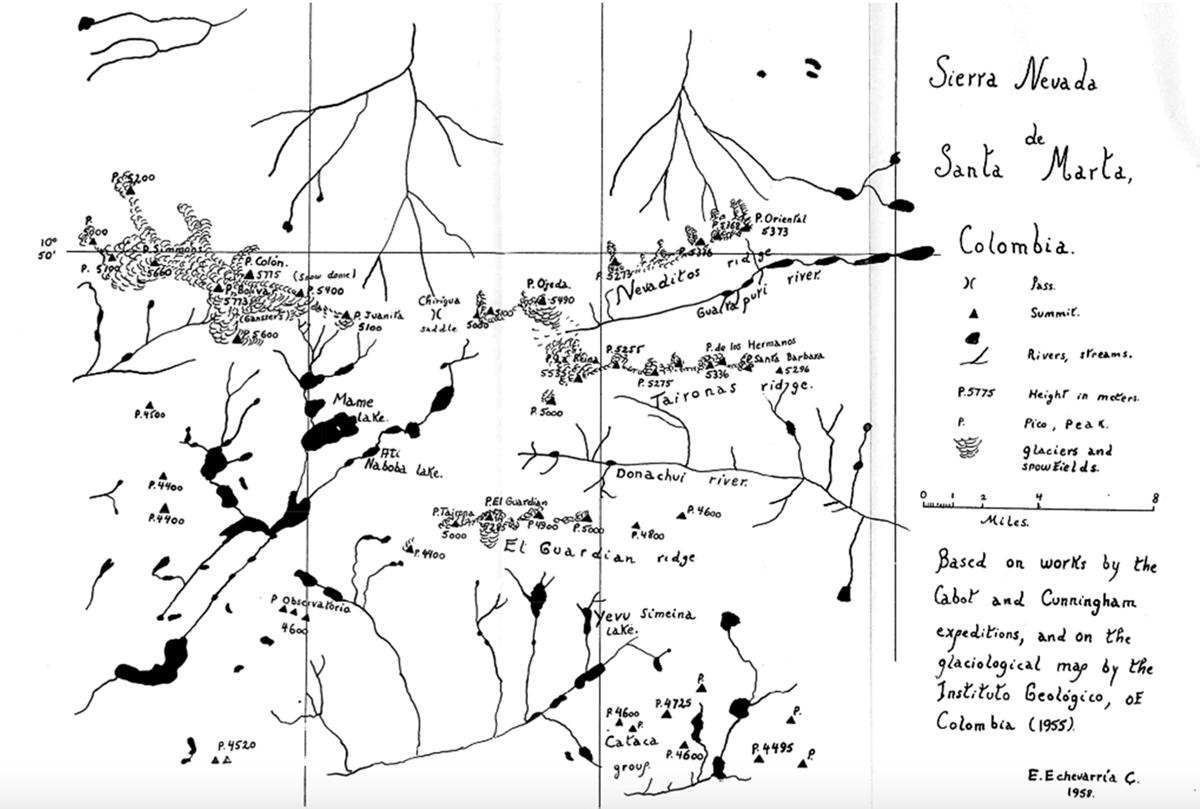 Sierra Nevada
de
Santa Marta,
Colombia.
Pass.
Summit.
Rivers, streams.
P.5775 Height in meters.
P. Pico, peak.
glaciers and
snowfields.
0 1 2 4 8
Miles.
Based on works by the
Cabot and Cunningham
expeditions, and on the
glaciological map by the
Instituto Geológico, of
Colombia (1955).
E. Echevarría C.
1958.
10°
50'
P. 5200
P.
5000
P. 5100
P. Simmons
5660
P. Colón.
5775
(Snow dome)
P. 5400
P. Bolívar
5773
P. 5600
P. Juanita
5100
Chirigua
saddle
5000
5100
P. Ojeda.
5490
P. 5273
Nevaditos ridge
P. Oriental
5373
Guatapurí river.
P. La Reina
5535
P. 5255
P. 5275
P. de los Hermanos
5336
P. Santa Barbara
5296
Taironas ridge.
P. 5000
P. 4500
P. 4400
P. 4400
Mame
lake.
Ati
Naboba lake.
Donachui river.
P. Tairona
5000
P. El Guardian
P. 4900
P. 5000
P. 4800
P. 4600
El Guardian ridge
P. 4400
P. Observatorio
4600
Yevu Simeina
lake.
P. 4600
P.
P. 4725
P.
Cataca
group.
P. 4600
P. 4495
P.
P.
P. 4520